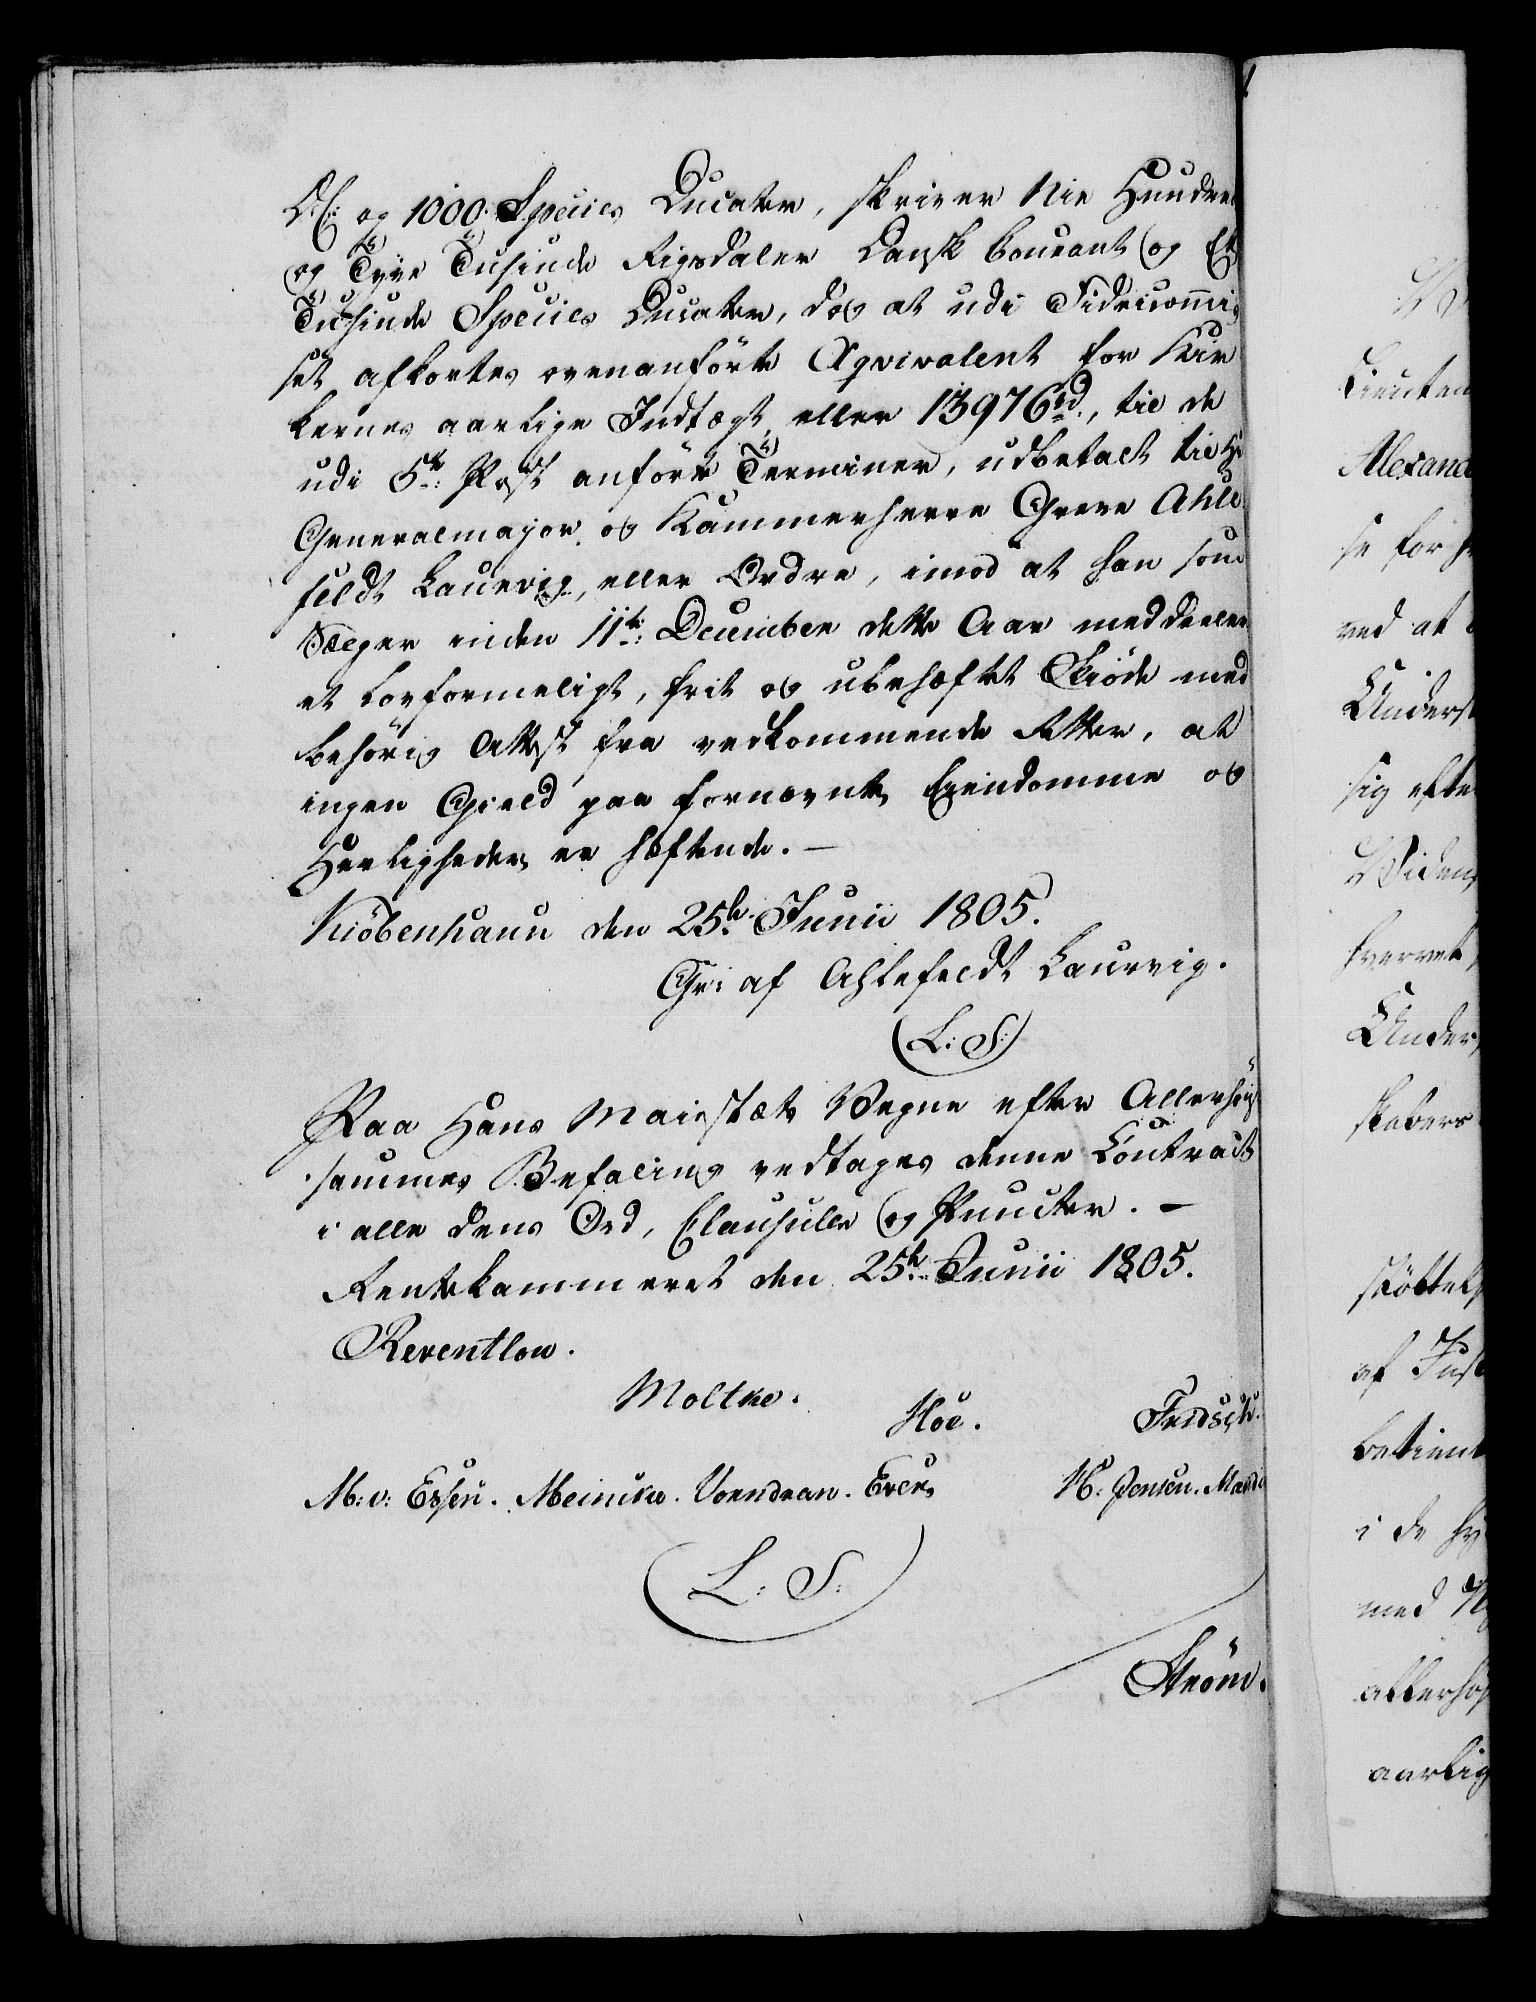 D.C. og 1000. Species Ducater, skriver Nie Hundre
og Tyve Tusinde Rigsdaler Dansk Courant og Et
Tusinde Species Ducater, dog at udi Fideicommis
set afkortes ovenanførte Æqvivalent for Kir
kernes aarlige Indtægt, eller 13976 rd, til de
udi 5te: Post anførte Terminer, udbetalt til Hr
Generalmajor og Kammerherre Greve Ahle
feldt Laurvig, eller Ordre, imod at han som
Sælger inden 11te: December dette Aar meddeeler
et lovformeligt, frit og ubehæftet Skiøde med
behørig Attest fra vedkommende Retter, at
ingen Gield paa fornævnte Eiendomme og
Herligheder er hæftende. —
Kiöbenhavn den 25de Junii 1805.
Gr: af Ahlefeldt Laurvig.
(L: S:)
Paa Hans Maiestæts Vegne efter Allerhøist
sammes Befaling vedtages denne Contract
i alle dens Ord, Clausuler og Puncter. —
Rentekammeret den 25de Junii 1805.
Reventlow.
Moltke.
Hoë. Fridsch.
M: v: Essen. Meinike. Vorndran. Evers N. Jensen.
(L: S:)
Strøm.
Lieuten
Alexand
se for
ved at
Unders
sig efte
Widen
hvervet,
Under
skabers
støttels
af Just
betient
i de
med
allerhøi
aarlig